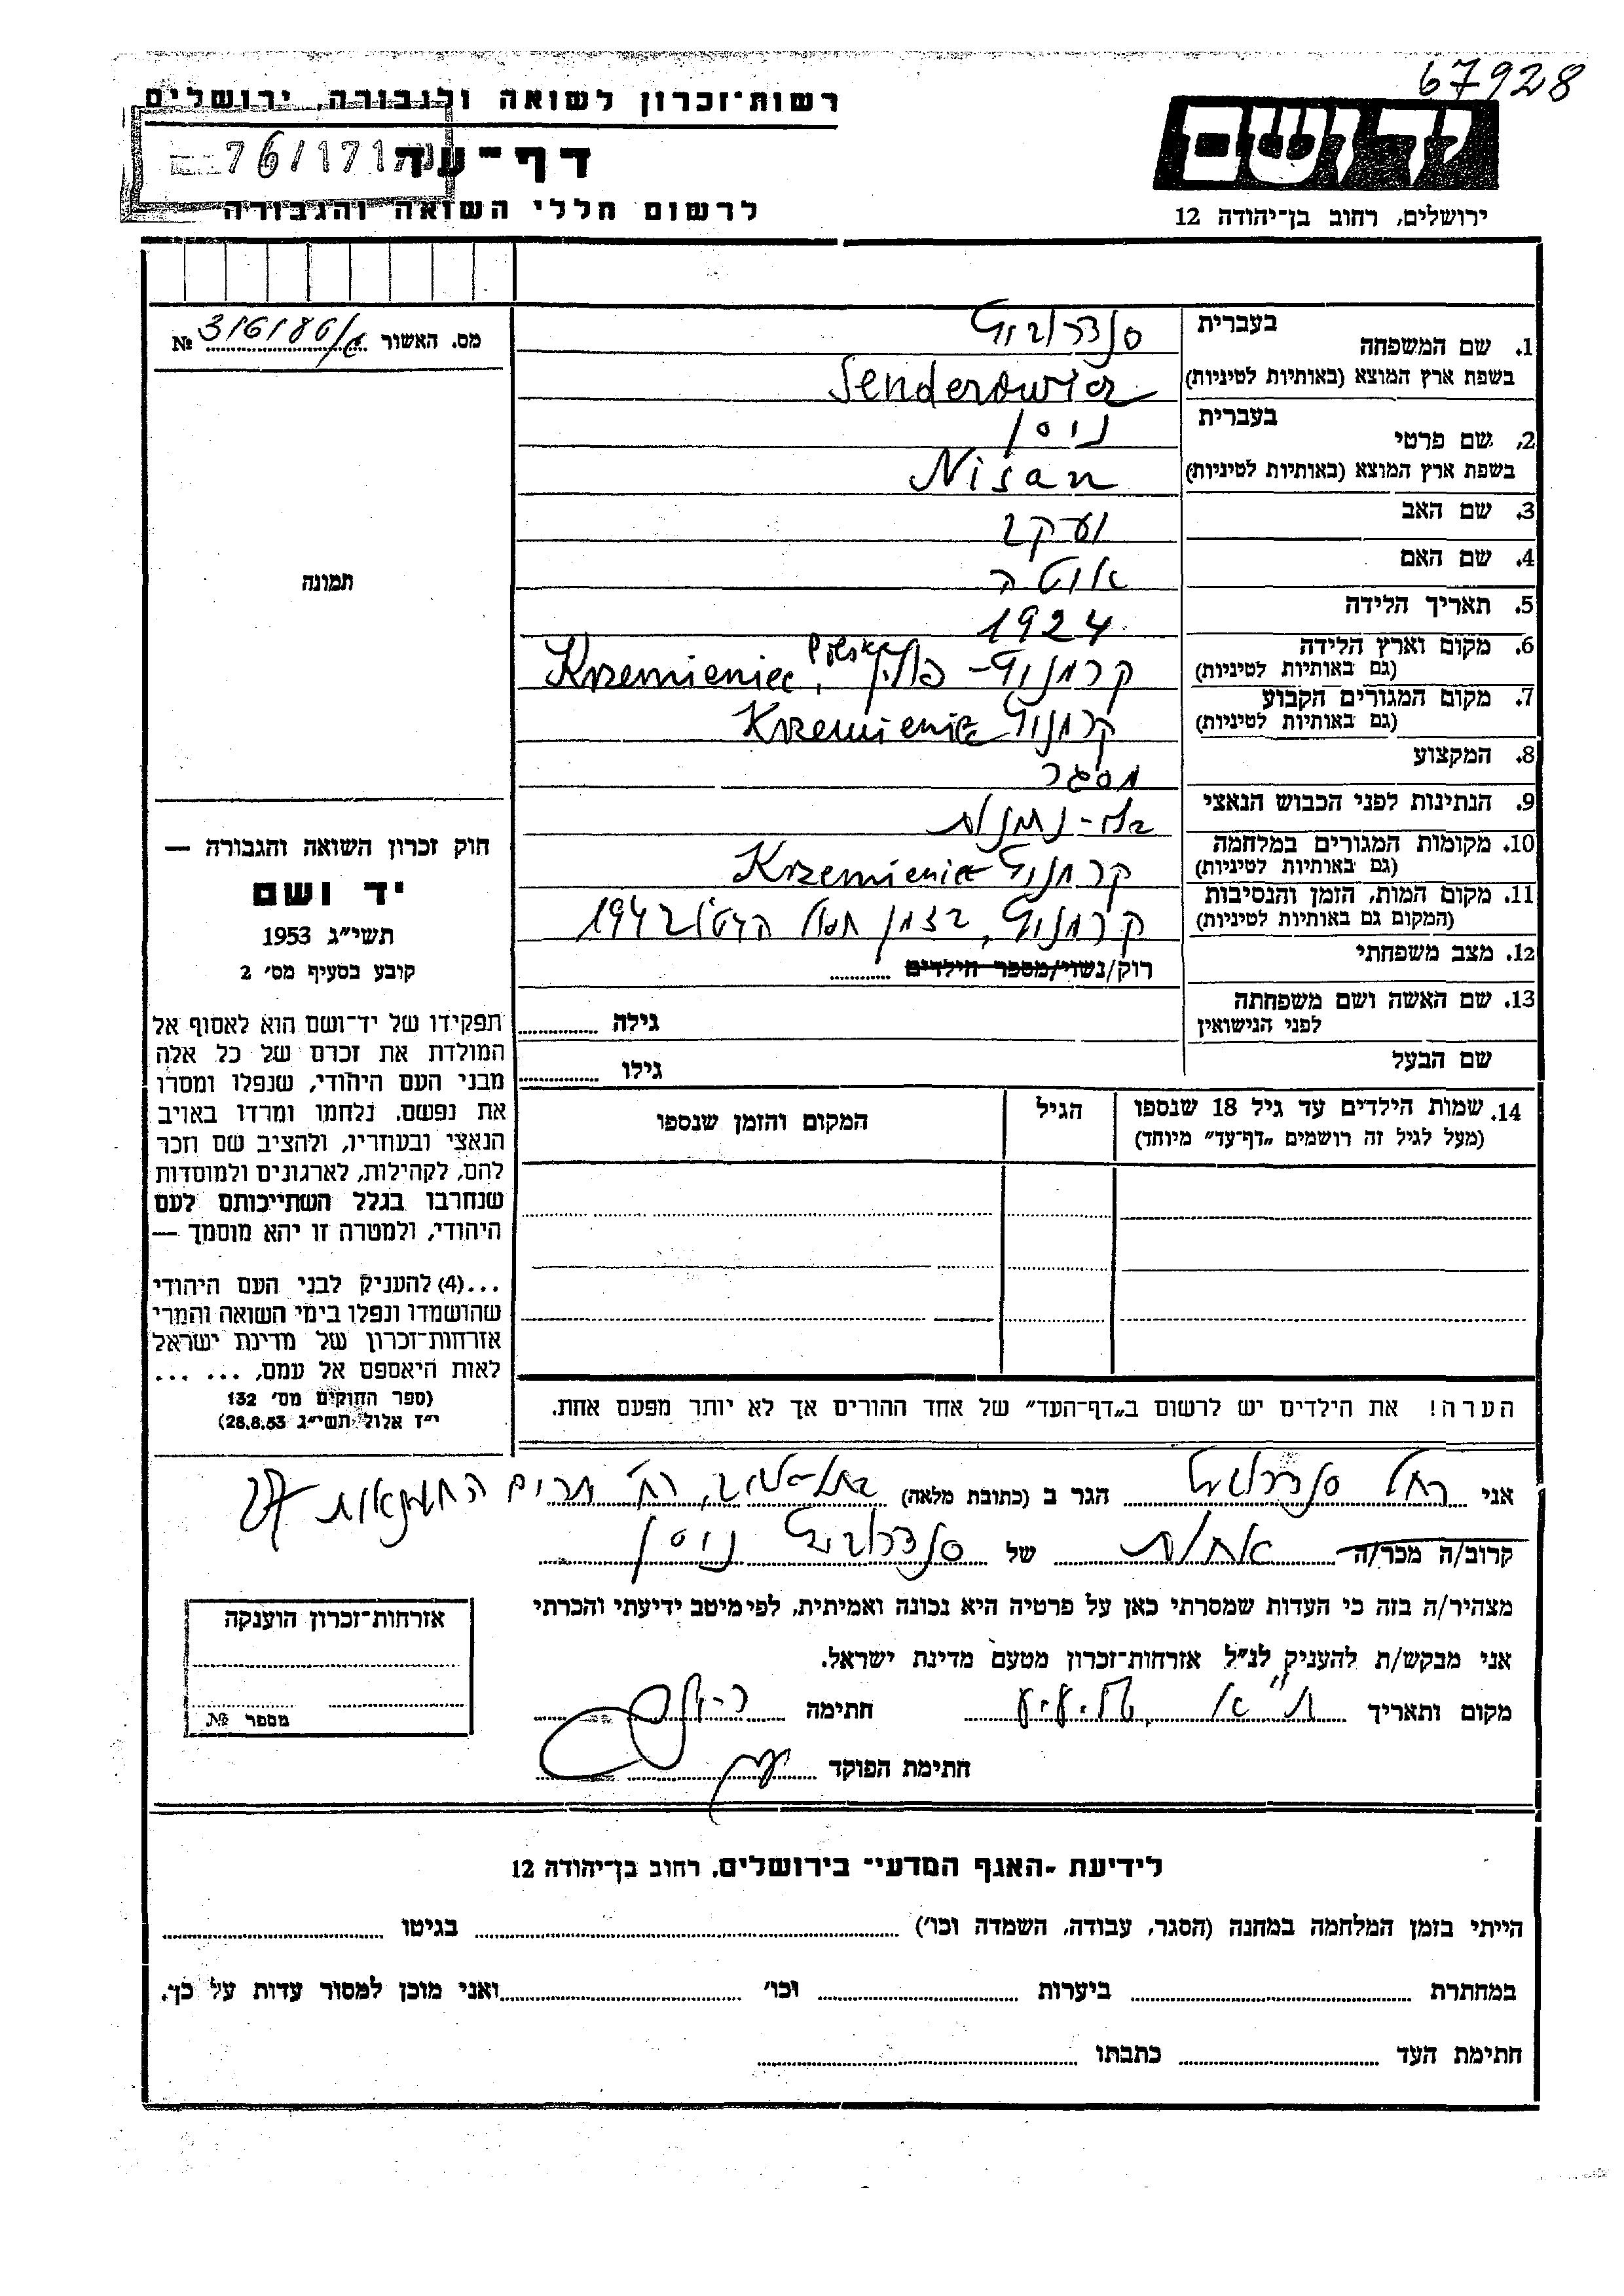 67928
רשות־זכרון לשואה ולגבורה, ירושלים
ידושם
76/171
דף־עד
לרשום חללי השואה והגבורה
ירושלים, רחוב בן־יהודה 12
מס. האשור № 316186/
1. שם המשפחה בעברית סנדרוביץ
בשפת ארץ המוצא (באותיות לטיניות) Senderowicz
2. שם פרטי בעברית ניסן
בשפת ארץ המוצא (באותיות לטיניות) Nisan
3. שם האב יעקב
4. שם האם
5. תאריך הלידה 1924
6. מקום וארץ הלידה (גם באותיות לטיניות) קרמניץ - פולין Krzemieniec, Polska
7. מקום המגורים הקבוע (גם באותיות לטיניות) קרמניץ Krzemieniec
8. המקצוע מסגר
9. הנתינות לפני הכבוש הנאצי
10. מקומות המגורים במלחמה (גם באותיות לטיניות) קרמניץ Krzemieniec
11. מקום המות, הזמן והנסיבות (המקום גם באותיות לטיניות) קרמניץ, בזמן חסול הגטו 1942
12. מצב משפחתי רוק/נשוי/מספר הילדים
13. שם האשה ושם משפחתה לפני הנישואין גילה
שם הבעל גילו
14. שמות הילדים עד גיל 18 שנספו (מעל לגיל זה רושמים „דף־עד״ מיוחד) הגיל המקום והזמן שנספו
הערה! את הילדים יש לרשום ב„דף־העד״ של אחד ההורים אך לא יותר מפעם אחת.
תמונה
חוק זכרון השואה והגבורה —
יד ושם
תשי״ג 1953
קובע בסעיף מס׳ 2
תפקידו של יד־ושם הוא לאסוף אל
המולדת את זכרם של כל אלה
מבני העם היהודי, שנפלו ומסרו
את נפשם, נלחמו ומרדו באויב
הנאצי ובעוזריו, ולהציב שם וזכר
להם, לקהילות, לארגונים ולמוסדות
שנחרבו בגלל השתייכותם לעם
היהודי, ולמטרה זו יהא מוסמך —
...(4) להעניק לבני העם היהודי
שהושמדו ונפלו בימי השואה והמרי
אזרחות־זכרון של מדינת ישראל
לאות היאספם אל עמם, ... ...
(ספר החוקים מס׳ 132
י״ז אלול תשי״ג 28.8.53)
אני רחל סנדרוביץ הגר ב (כתובת מלאה) תל-אביב, רח׳ 27
קרוב/ה מכר/ה אחות של סנדרוביץ ניסן
מצהיר/ה בזה כי העדות שמסרתי כאן על פרטיה היא נכונה ואמיתית, לפי מיטב ידיעתי והכרתי
אני מבקש/ת להעניק לנ״ל אזרחות־זכרון מטעם מדינת ישראל.
מקום ותאריך ת״א חתימה
חתימת הפוקד
אזרחות־זכרון הוענקה
מספר №
לידיעת ״האגף המדעי״ בירושלים, רחוב בן־יהודה 12
הייתי בזמן המלחמה במחנה (הסגר, עבודה, השמדה וכו׳) בגיטו
במחתרת ביערות וכו׳ ואני מוכן למסור עדות על כך.
חתימת העד כתבתו